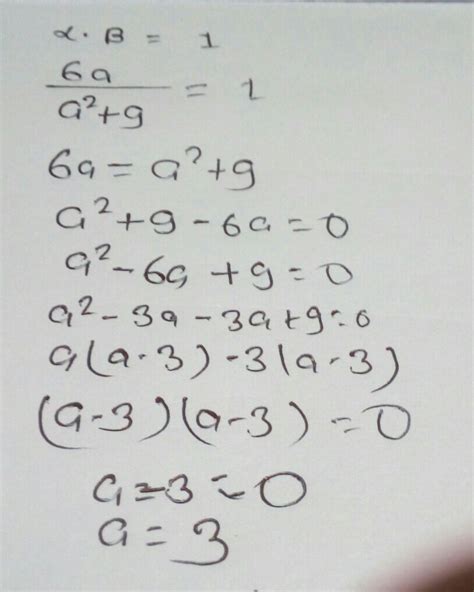 α. β = 1
6a
a²+9 = 1
6a = a²+9
a²+9-6a=0
a²-6a +9=0
a²-3a-3a+9=0
a(a-3)-3(a-3)
(a-3)(a-3)=0
a-3=0
a=3